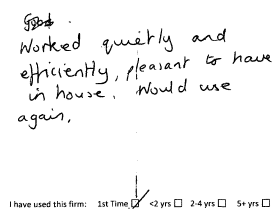 Good.
Worked quietly and
efficiently, pleasant to have
in house. Would use
again.
I have used this firm: 1st Time ☑ <2 yrs ☐ 2-4 yrs ☐ 5+ yrs ☐